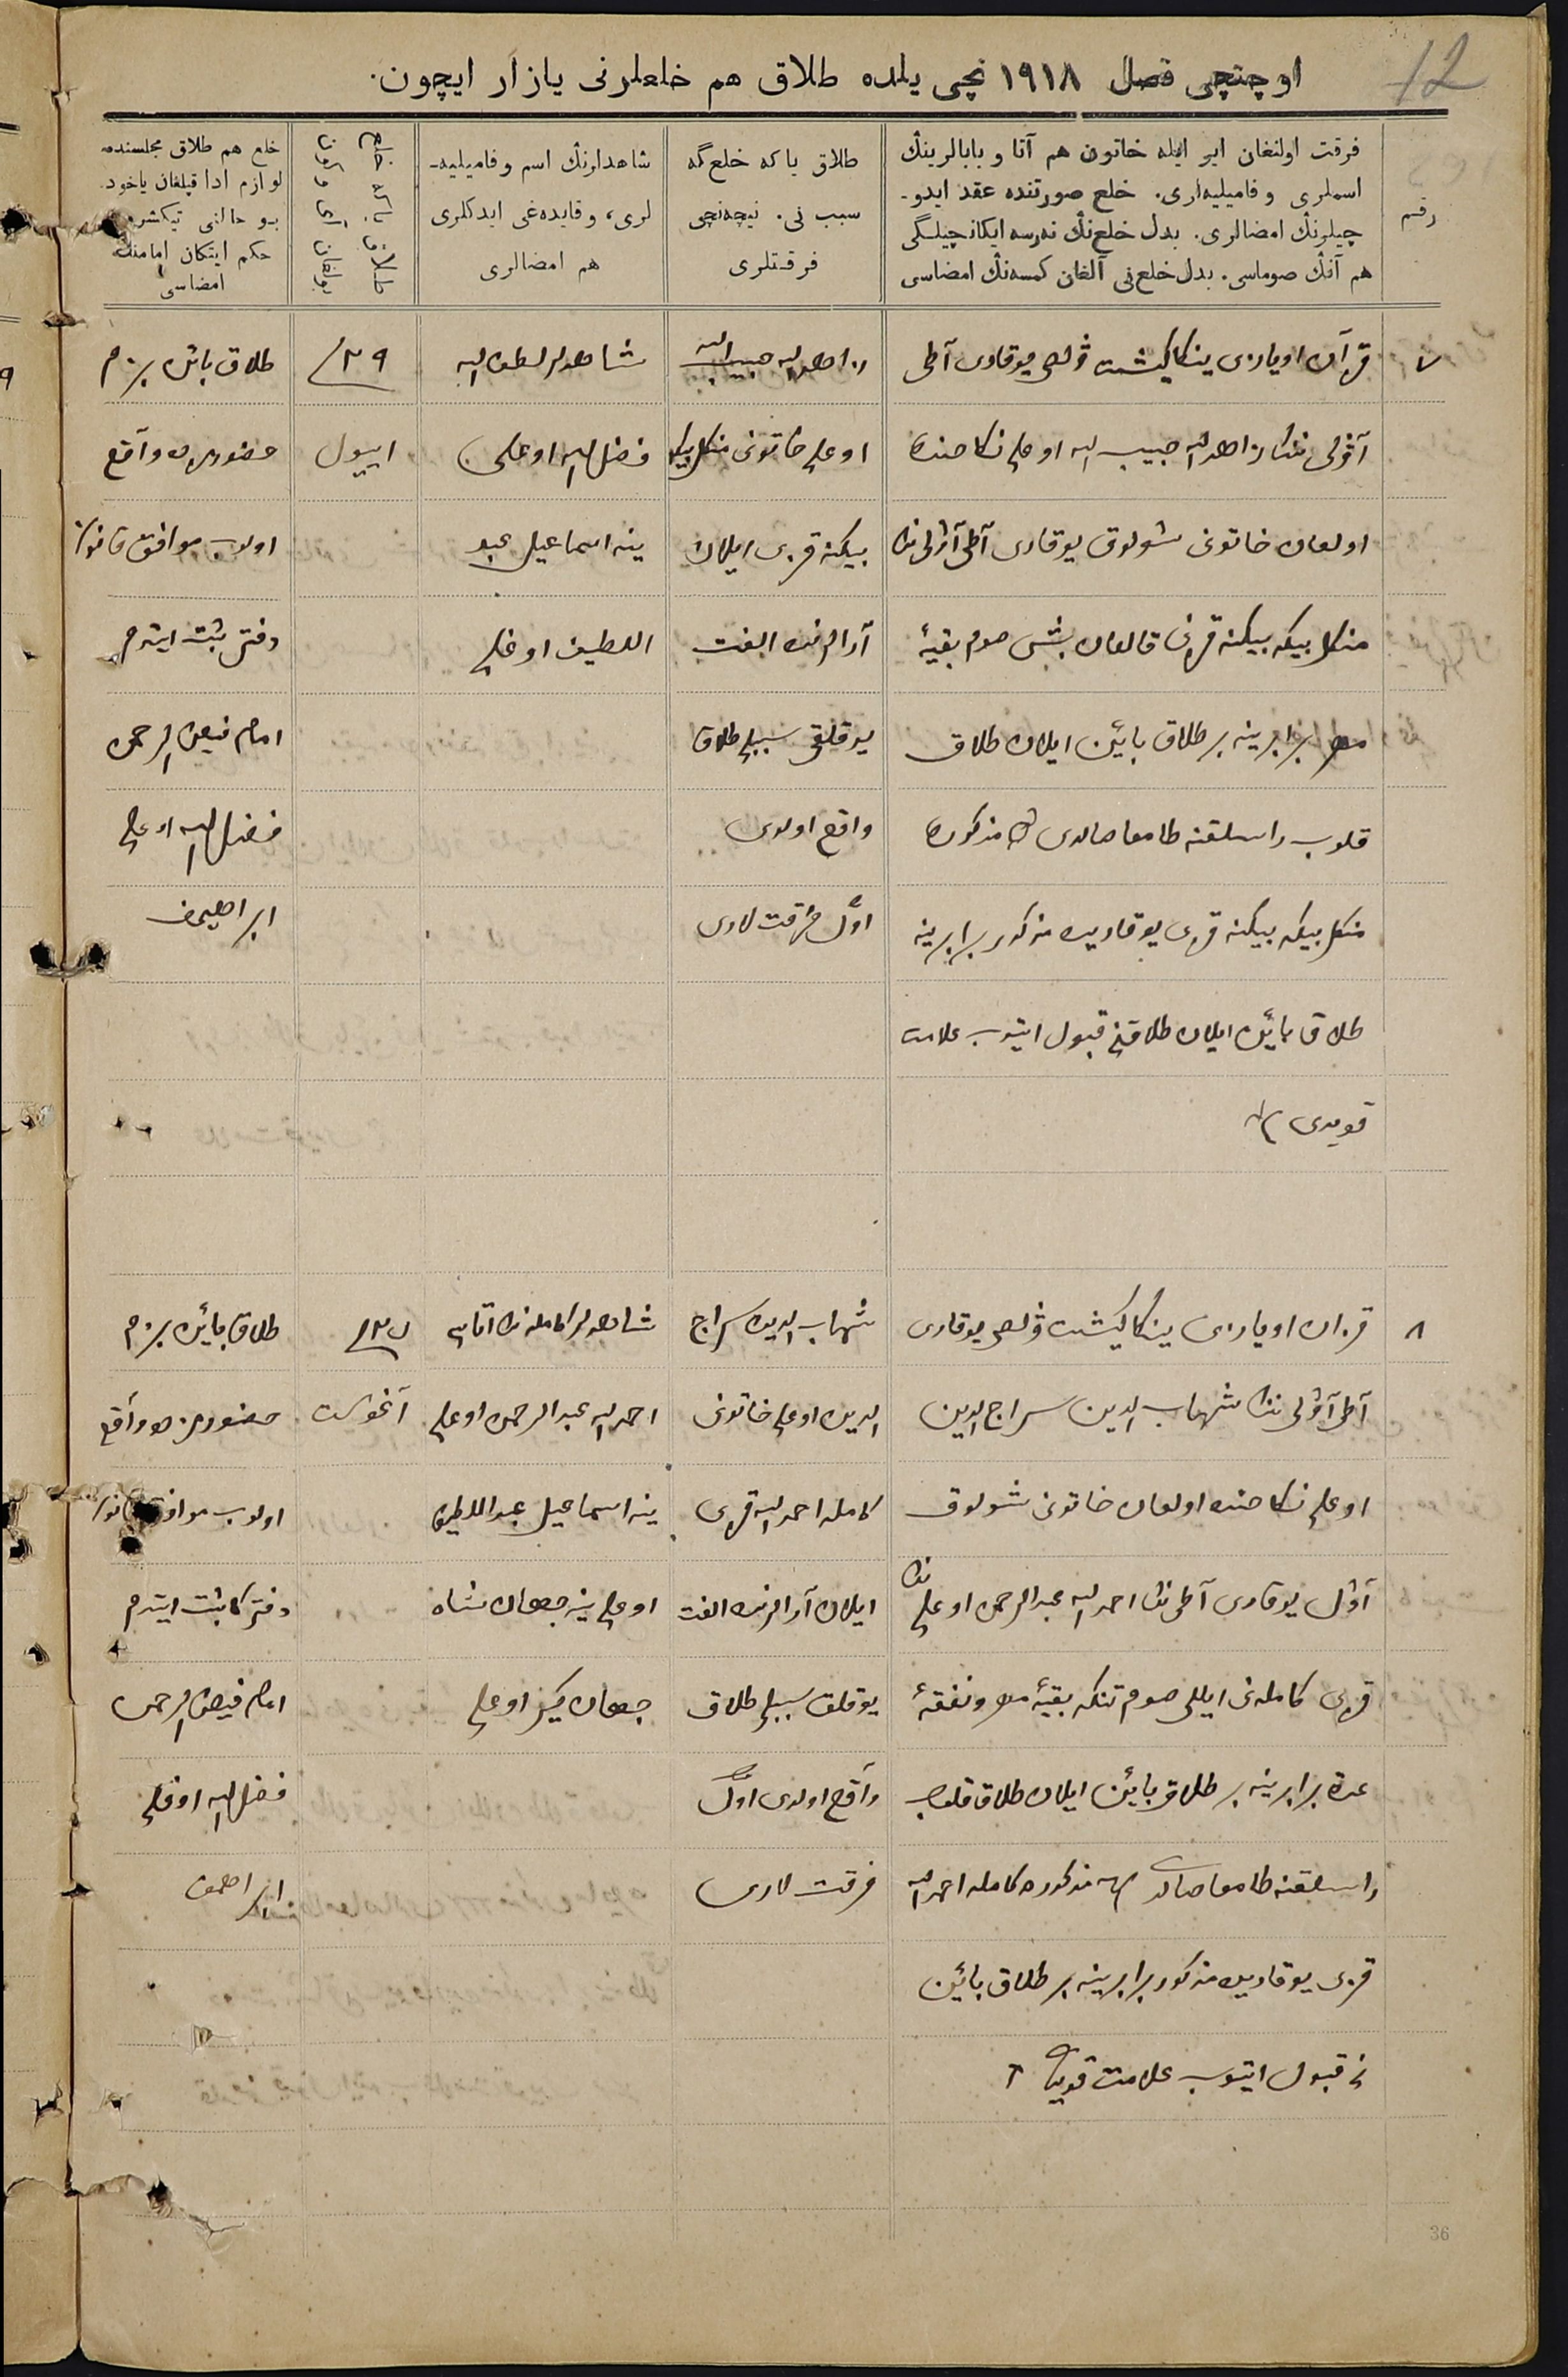 12
اوچنچی فصل ١٩١٨ نچی یلده طلاق هم خلعلرنی یازار ایچون.
رقم
فرقت اولنغان ایر ایله خاتون هم آتا و بابالرینڭ
اسملری و فامیلیه‌لری. خلع صورتنده عقد ایدو-
چیلرنڭ امضالری. بدل خلع‌نڭ نەرسه ایکانچیلگی
هم آنڭ صوماسی. بدل خلع‌نی آلغان کمسه‌نڭ امضاسی
طلاق یا که خلع گه
سبب نی. نیچه‌نچی
فرقتلری
شاهدلرنڭ اسم و فامیلیه-
لری، و قایده‌غی ایدکلری
هم امضالری
طلاق یا که خلع
خلع هم طلاق مجلسنده
لوازم ادا قیلغان یاخود
بو حالنی تیکشروب
حکم ایتکان امامنڭ
امضاسی
٧
قزان اویازی ینکا کیشت ولصی یوقاری آطی
آولی ننڭ حبیب الله اوغلی نکاحنده
اولغان خاتونی شولوق یوقاری آطی آولی ننڭ
منکل بیکه بیکنه قزی قالغان بش صوم بقیهٔ
مهر برابرینه بر طلاق بائن ایلان طلاق
قلوب مذکوره
منکل بیکه بیکنه قزی یوقاریده مذکور برابرینه
طلاق بائن ایلان طلاقنی قبول ایتوب علامت
قویدی
حبیب الله
اوغلی خاتونی منکل بیکه
بیکنه قزی ایلان
آرالرنده الفت
یوقلقی سببلی طلاق
واقع اولدی
اول فرقت لاری
شاهدلر لطف الله
فضل الله اوغلی
ینه اسماعیل عبد
اللطیف اوغلی
٢٩
اییول
طلاق بائن بزم
حضورمزده واقع
اولوب موافق قانون
دفتر ثبت ایتدم
امام فیض الرحمن
فضل الله اوغلی
ابراهیمف
٨
قزان اویازی ینکا کیشت ولصی یوقاری
آطی آولی ننڭ شهاب الدین سراج الدین
اوغلی نکاحنده اولغان خاتونی شولوق
آول یوقاری آطی ننڭ احمد الله عبد الرحمن اوغلی ننڭ
قزی کامله‌نی ایللی صوم تنکه بقیهٔ مهر و نفقهٔ
عدة برابرینه بر طلاق بائن ایلان طلاق قلوب
مذکوره کامله احمد الله
قزی یوقاریده مذکور برابرینه بر طلاق بائن
نی قبول ایتوب علامت قویدی
شهاب الدین سراج
الدین اوغلی خاتونی
کامله احمد الله قزی
ایلان آرالرنده الفت
یوقلق سببلی طلاق
واقع اولدی اول
فرقت لاری
شاهدلر کامله ننڭ آتاسی
احمد الله عبد الرحمن اوغلی
ینه اسماعیل عبد اللطیف
اوغلی ینه جهان شاه
جهان کیر اوغلی
آغوست
طلاق بائن بزم
حضورمزده واقع
اولوب موافق قانون
دفترکا ثبت ایتدم
امام فیض الرحمن
فضل الله اوغلی
ابراهیمف
36